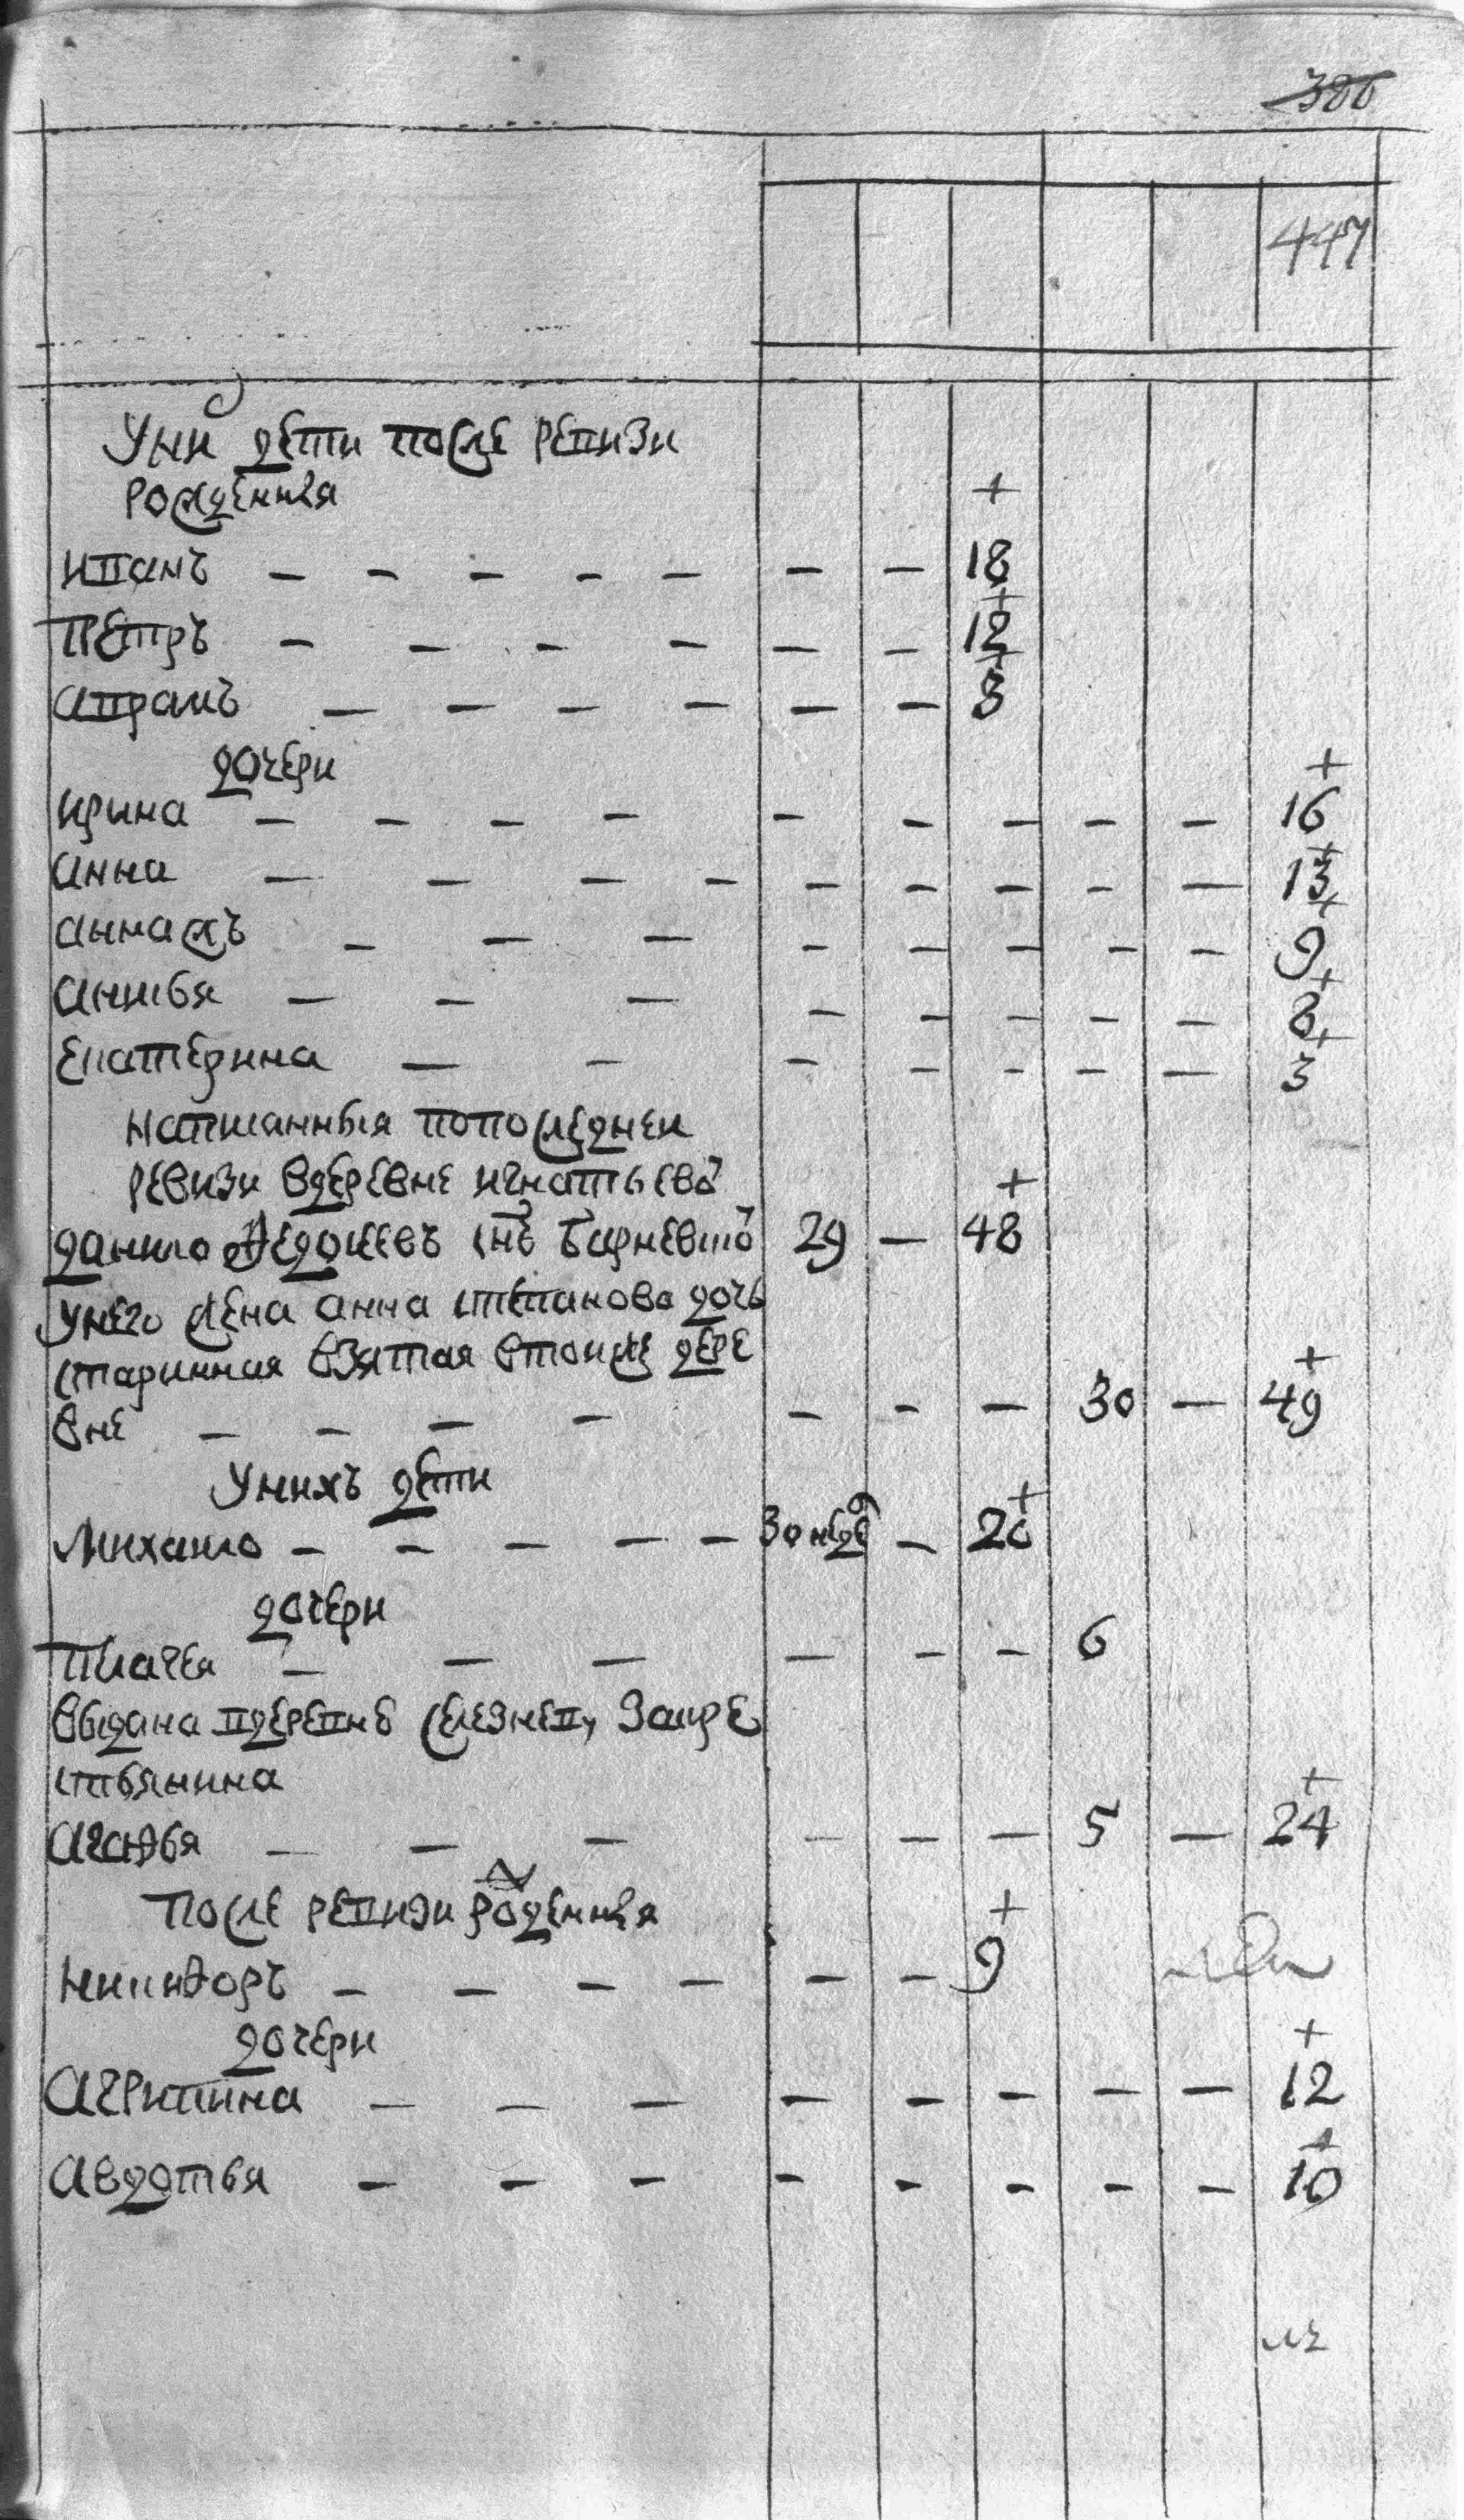 386
447
Уни дети после ревизи
рожденныя +
иванъ — — — — — — — 18
+
Петръ — — — — — — 12
+
аврамъ — — — — — — 3
дочери +
ирина — — — — — — — — — 16
+
анна — — — — — — — — — 13
+
аннажъ — — — — — — — — 9
+
анисья — — — — — — — — 8
+
екатерина — — — — — — — 3
написанныя попоследнеи
ревизи вдеревне игнатьево +
данило Ѳедосеевъ снъ 29 — 48
унего жена анна степанова дочь
старинная взятая втоиже дере +
вне — — — — — — — 30 — 49
Унихъ дети +
Михаило — — — — — 30 недѣ — 20
дочери
Пелагея — — — — — — 6
выдана вдеревнѣ за кре
стьянина +
Агафья — — — — — — 5 — 24
После ревизи рожденныя +
Никифоръ — — — — — — 9
дочери +
Агрипина — — — — — — — — 12
+
Авдотья — — — — — — — — 10